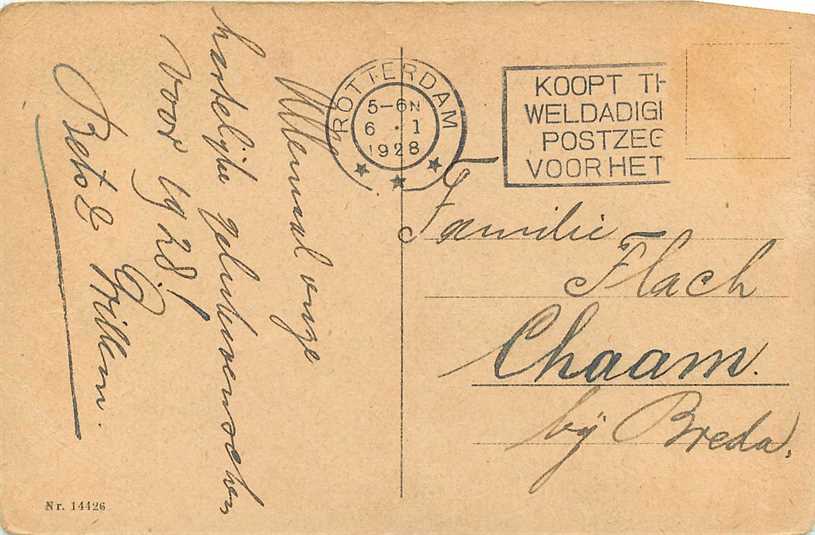 Allemaal onze
hartelijke gelukwenschen
voor 1928!
Beto & Willem.
ROTTERDAM
5-6N
6 . 1
1928
KOOPT TH
WELDADIGI
POSTZEG
VOOR HET
Familie
Flach
Chaam.
bij Breda,
Nr. 14426